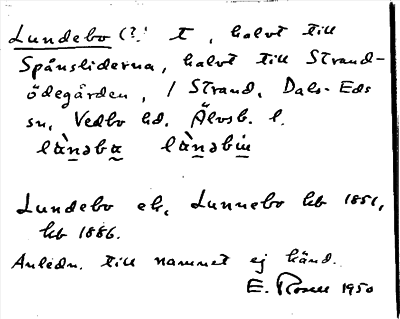 Lundebo (?) t, halvt till
Spånsliderna, halvt till Strand-
ödegården, / Strand, Dals-Eds
sn, Vedbo hd. Älvsb. l.
lànəba lànəbiu
Lundebo ek, Lunnebo kb 1851,
kb 1886.
Anledn. till namnet ej känd.
E. Rosell 1950